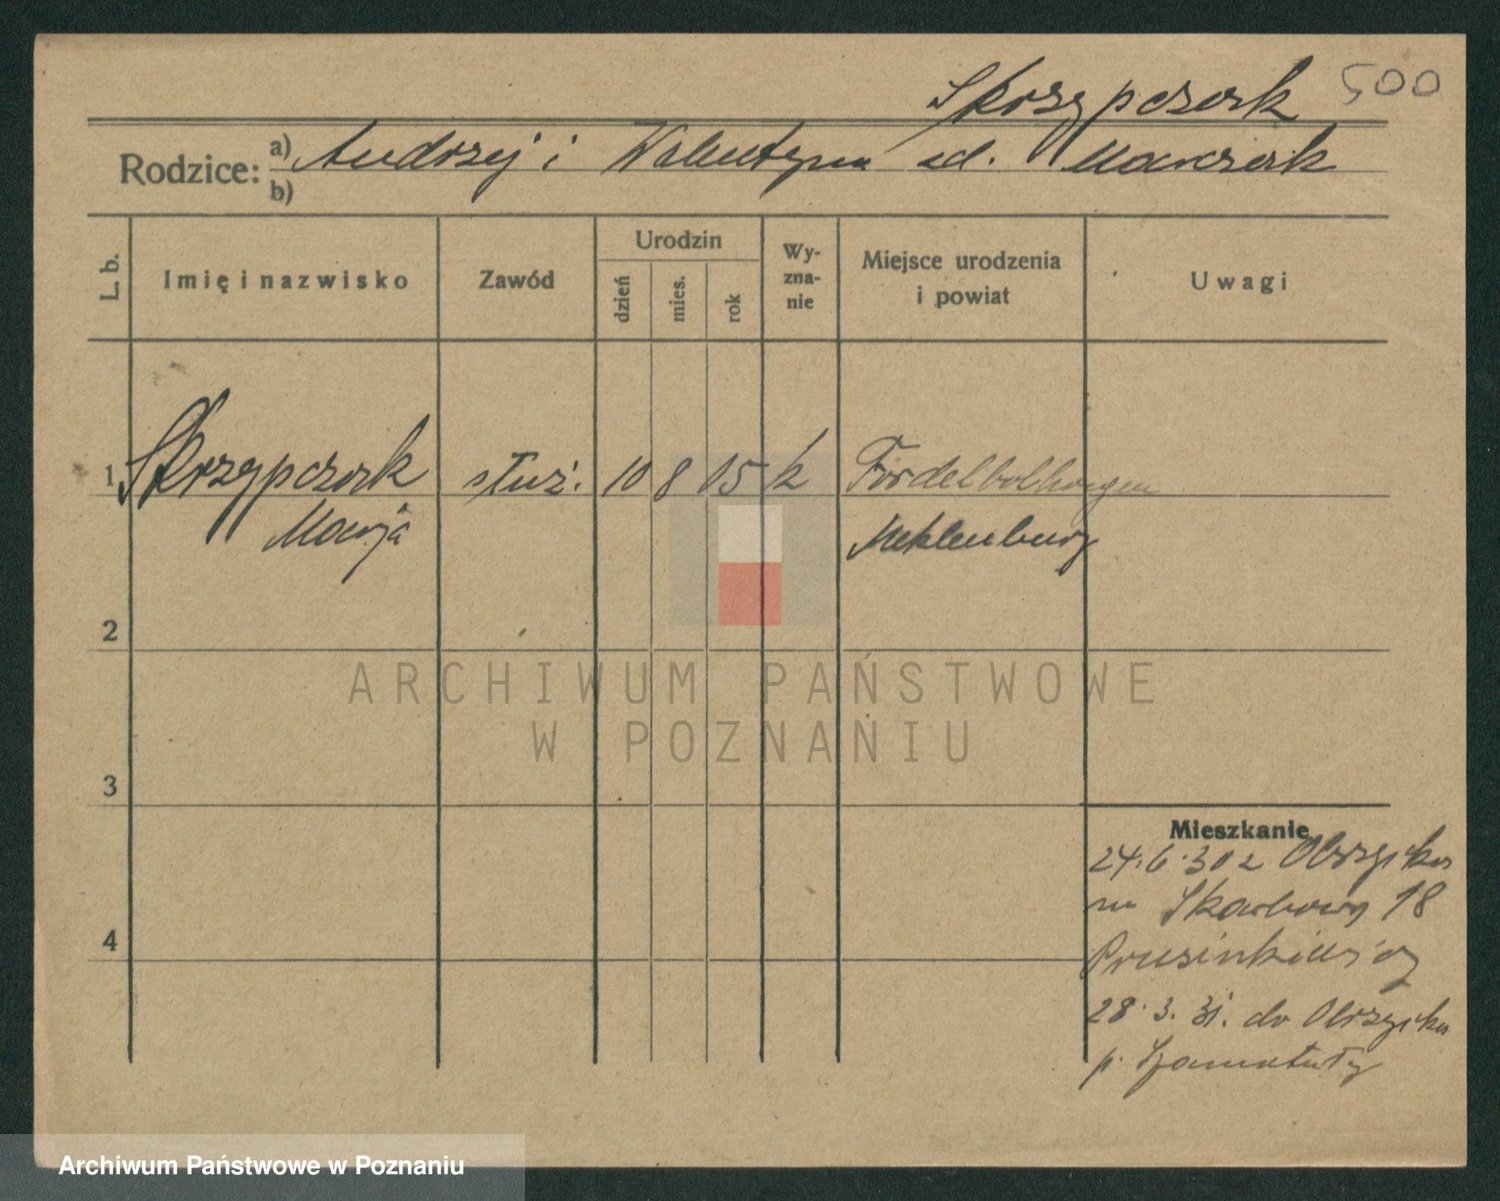 Skrzypczak 500
Rodzice: a) Andrzej i Walentyna zd. Marczak
b)
L. b. Imię i nazwisko Zawód Urodzin dzień mies. rok Wyznanie Miejsce urodzenia i powiat Uwagi
1 Skrzypczak służ. 10 8 15 k
Marja Meklenburg
2
3
4
Mieszkanie
24.6.30 z Obrzycka
na Skarbową 18
Prusinkiewicz
28.3.31. do Obrzycka
p. Szamotuły
ARCHIWUM PAŃSTWOWE
W POZNANIU
Archiwum Państwowe w Poznaniu